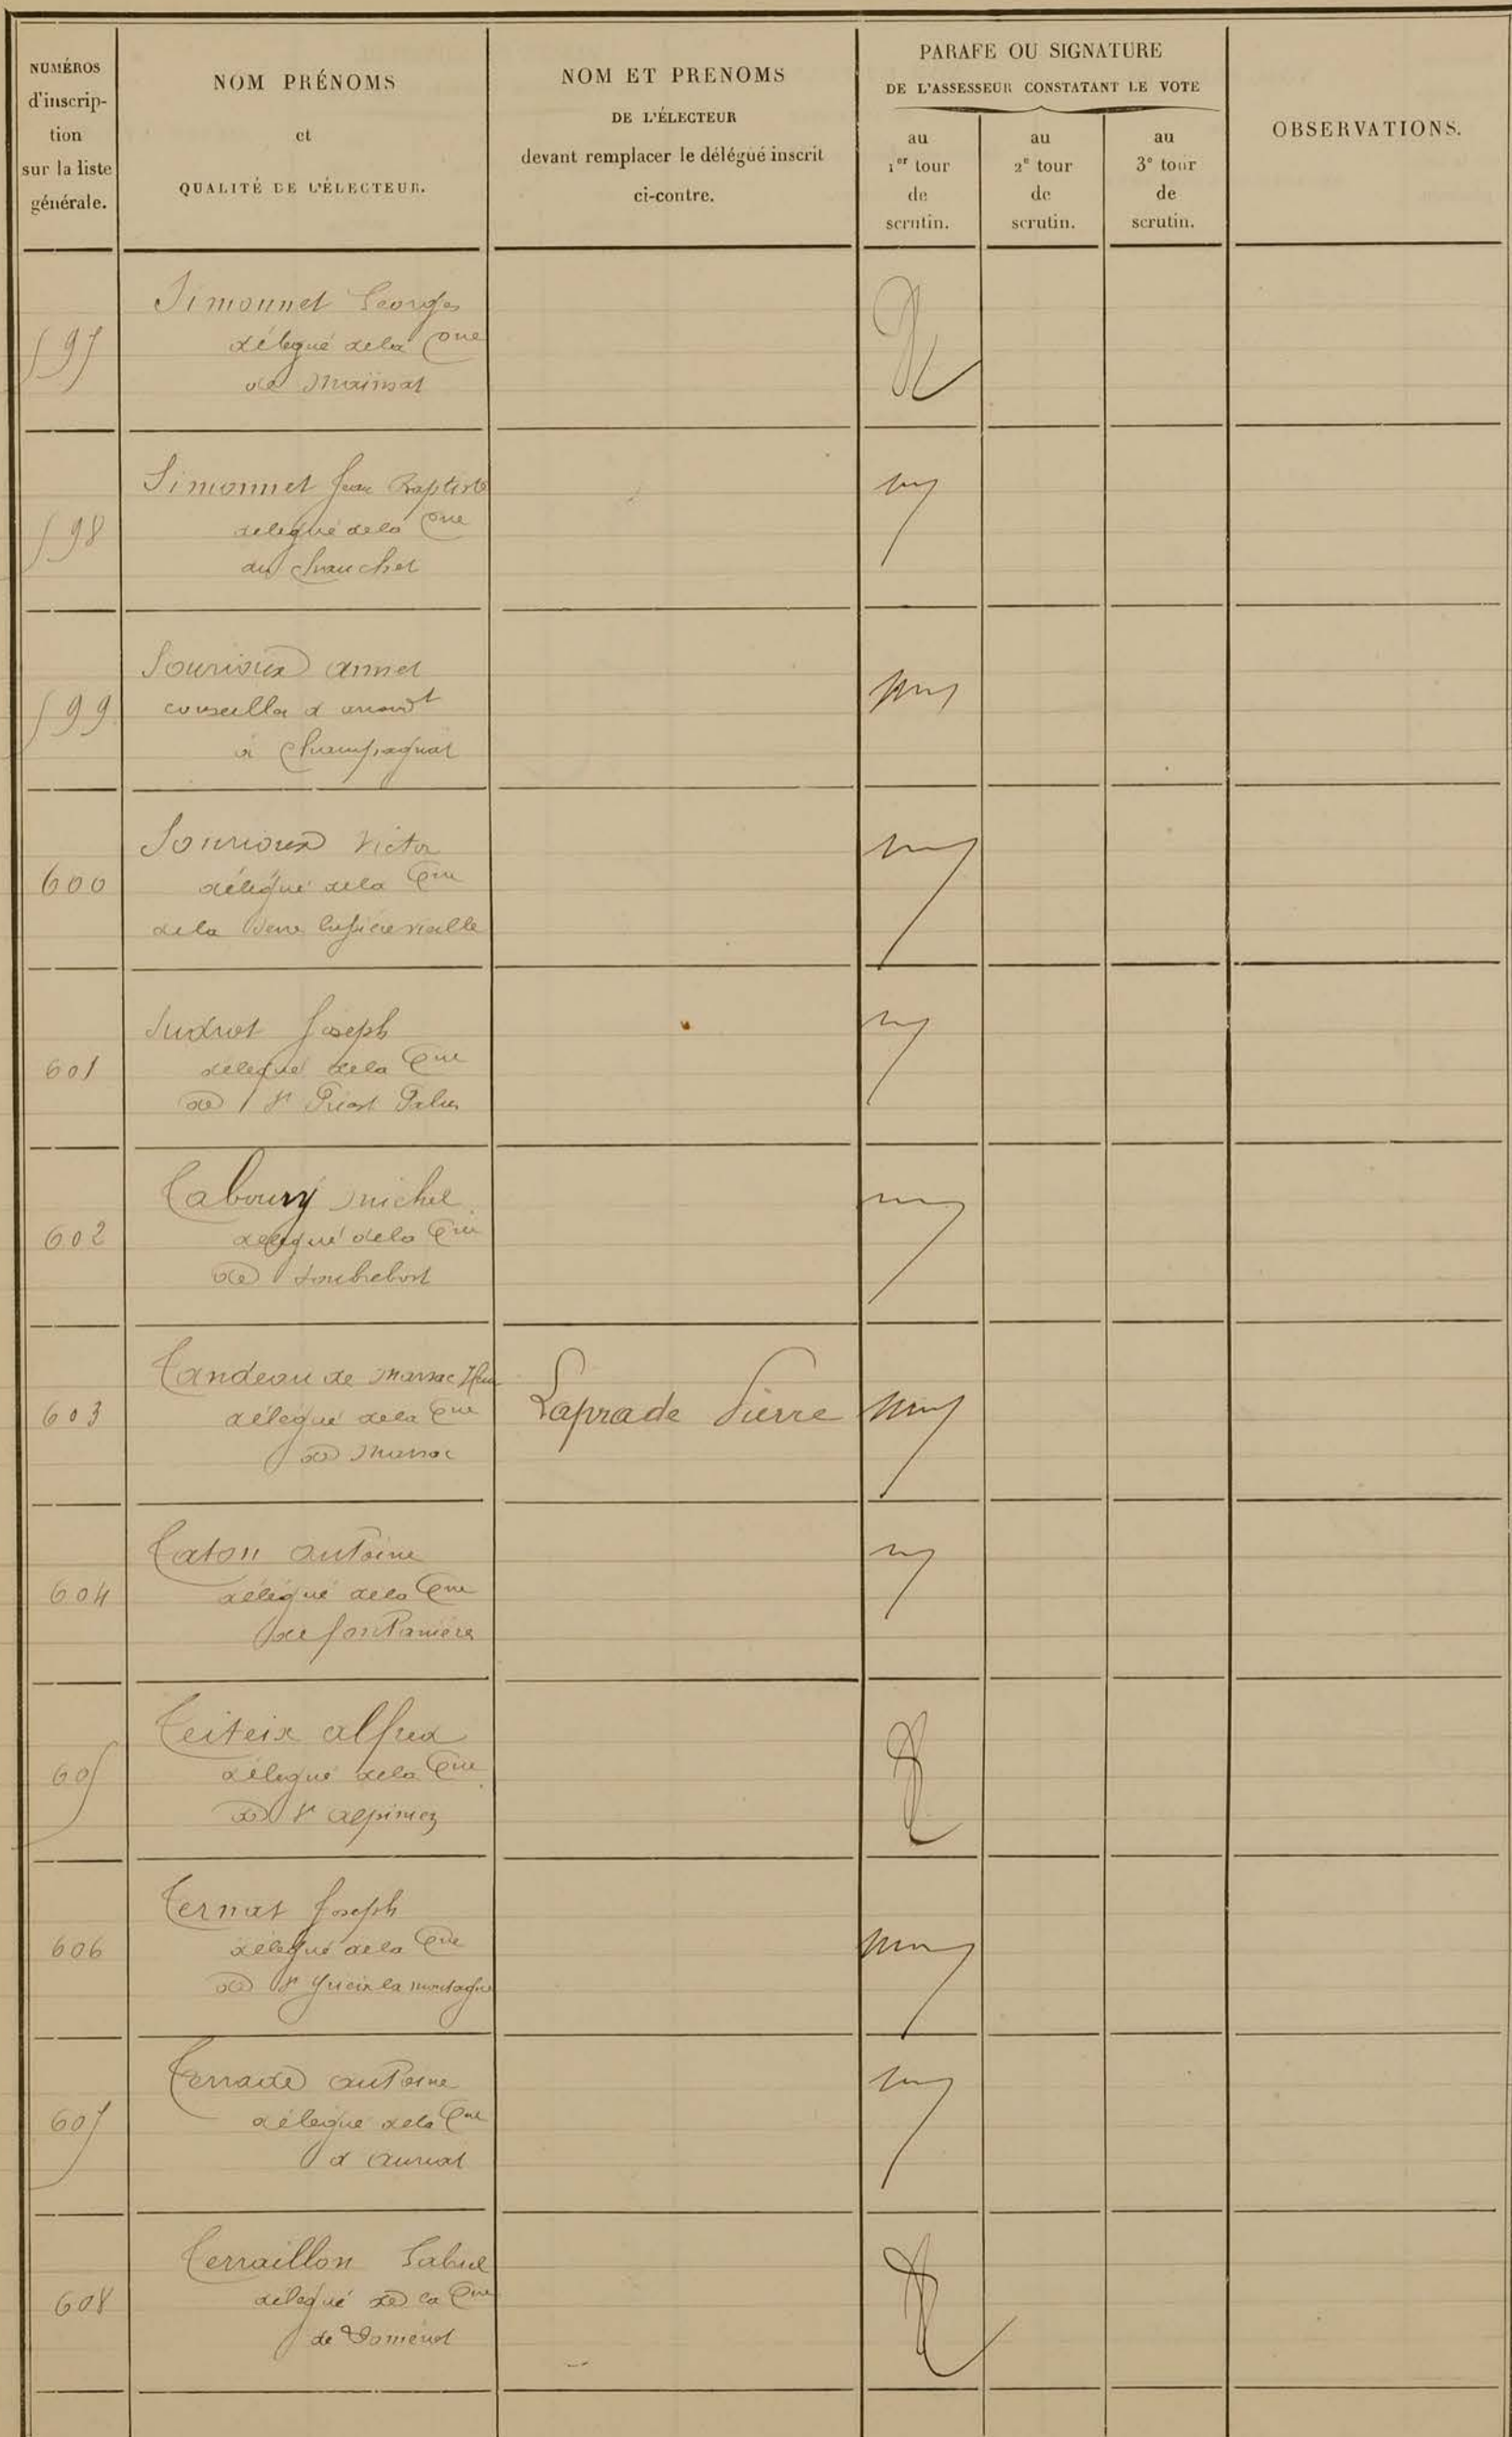 NUMÉROS
d'inscrip-
tion
sur la liste
générale.
NOM PRÉNOMS
et
QUALITÉ DE L'ÉLECTEUR.
NOM ET PRENOMS
DE L'ÉLECTEUR
devant remplacer le délégué inscrit
ci-contre.
PARAFE OU SIGNATURE
DE L'ASSESSEUR CONSTATANT LE VOTE
au
1er tour
de
scrutin.
au
2e tour
de
scrutin.
au
3e tour
de
scrutin.
OBSERVATIONS.
597
Simonnet Georges
délégué de la Cne
de Mainsat
598
Simonnet Jean Baptiste
délégué de la Cne
du Chauchet
599
Sourioux Annet
conseiller d'arrondt
à Champagnat
600
Sourioux Victor
délégué de la Cne
de la Serre Bussière vieille
601
Sudrot Joseph
délégué de la Cne
de St Priest Palus
602
Taboury Michel
délégué de la Cne
de Soubrebost
603
Tandeau de Marsac
délégué de la Cne
de Marsac
Laprade Pierre
604
Taton Antoine
délégué de la Cne
de fontanières
605
Teiteix Alfred
délégué de la Cne
de St Alpinien
606
Ternat Joseph
délégué de la Cne
de St Yrieix la montagne
607
Terrade Antoine
délégué de la Cne
d'Auriat
608
Terraillon Gabriel
délégué de la Cne
de Domérot